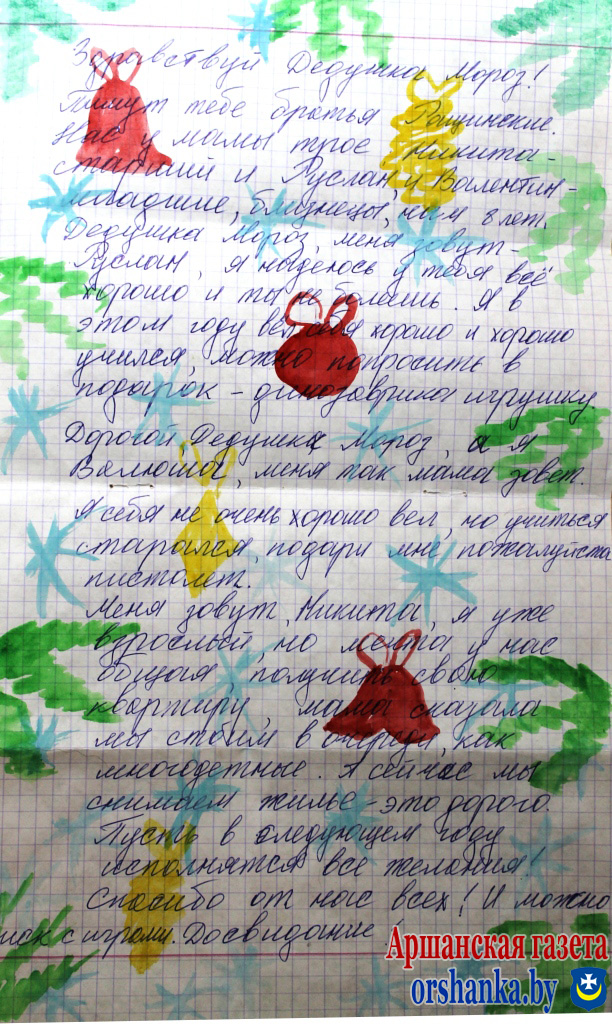 Здравствуй Дедушка Мороз!
Пишут тебе братья Ращинские.
Нас у мамы трое Никита-
старший и Руслан, и Валентин-
младшие, близнецы, нам 8 лет.
Дедушка Мороз, меня зовут-
Руслан, я надеюсь у тебя всё
хорошо и ты не болеешь. Я в
этом году вёл себя хорошо и хорошо
учился, можно попросить в
подарок - динозаврика игрушку.
Дорогой, Дедушка Мороз, а я
Валюша, меня так мама зовет.
Я себя не очень хорошо вел, но учиться
старался, подари мне, пожалуйста
пистолет.
Меня зовут, Никита, я уже
взрослый, но мечта у нас
общая, получить свою
квартиру, мама сказала
мы стоим в очереди, как
многодетные. А сейчас мы
снимаем жилье - это дорого.
Пусть в следующем году
исполнятся все желания!
Спасибо от нас всех! И можно
иск с играми. Досвидание!
Аршанская газета
orshanka.by